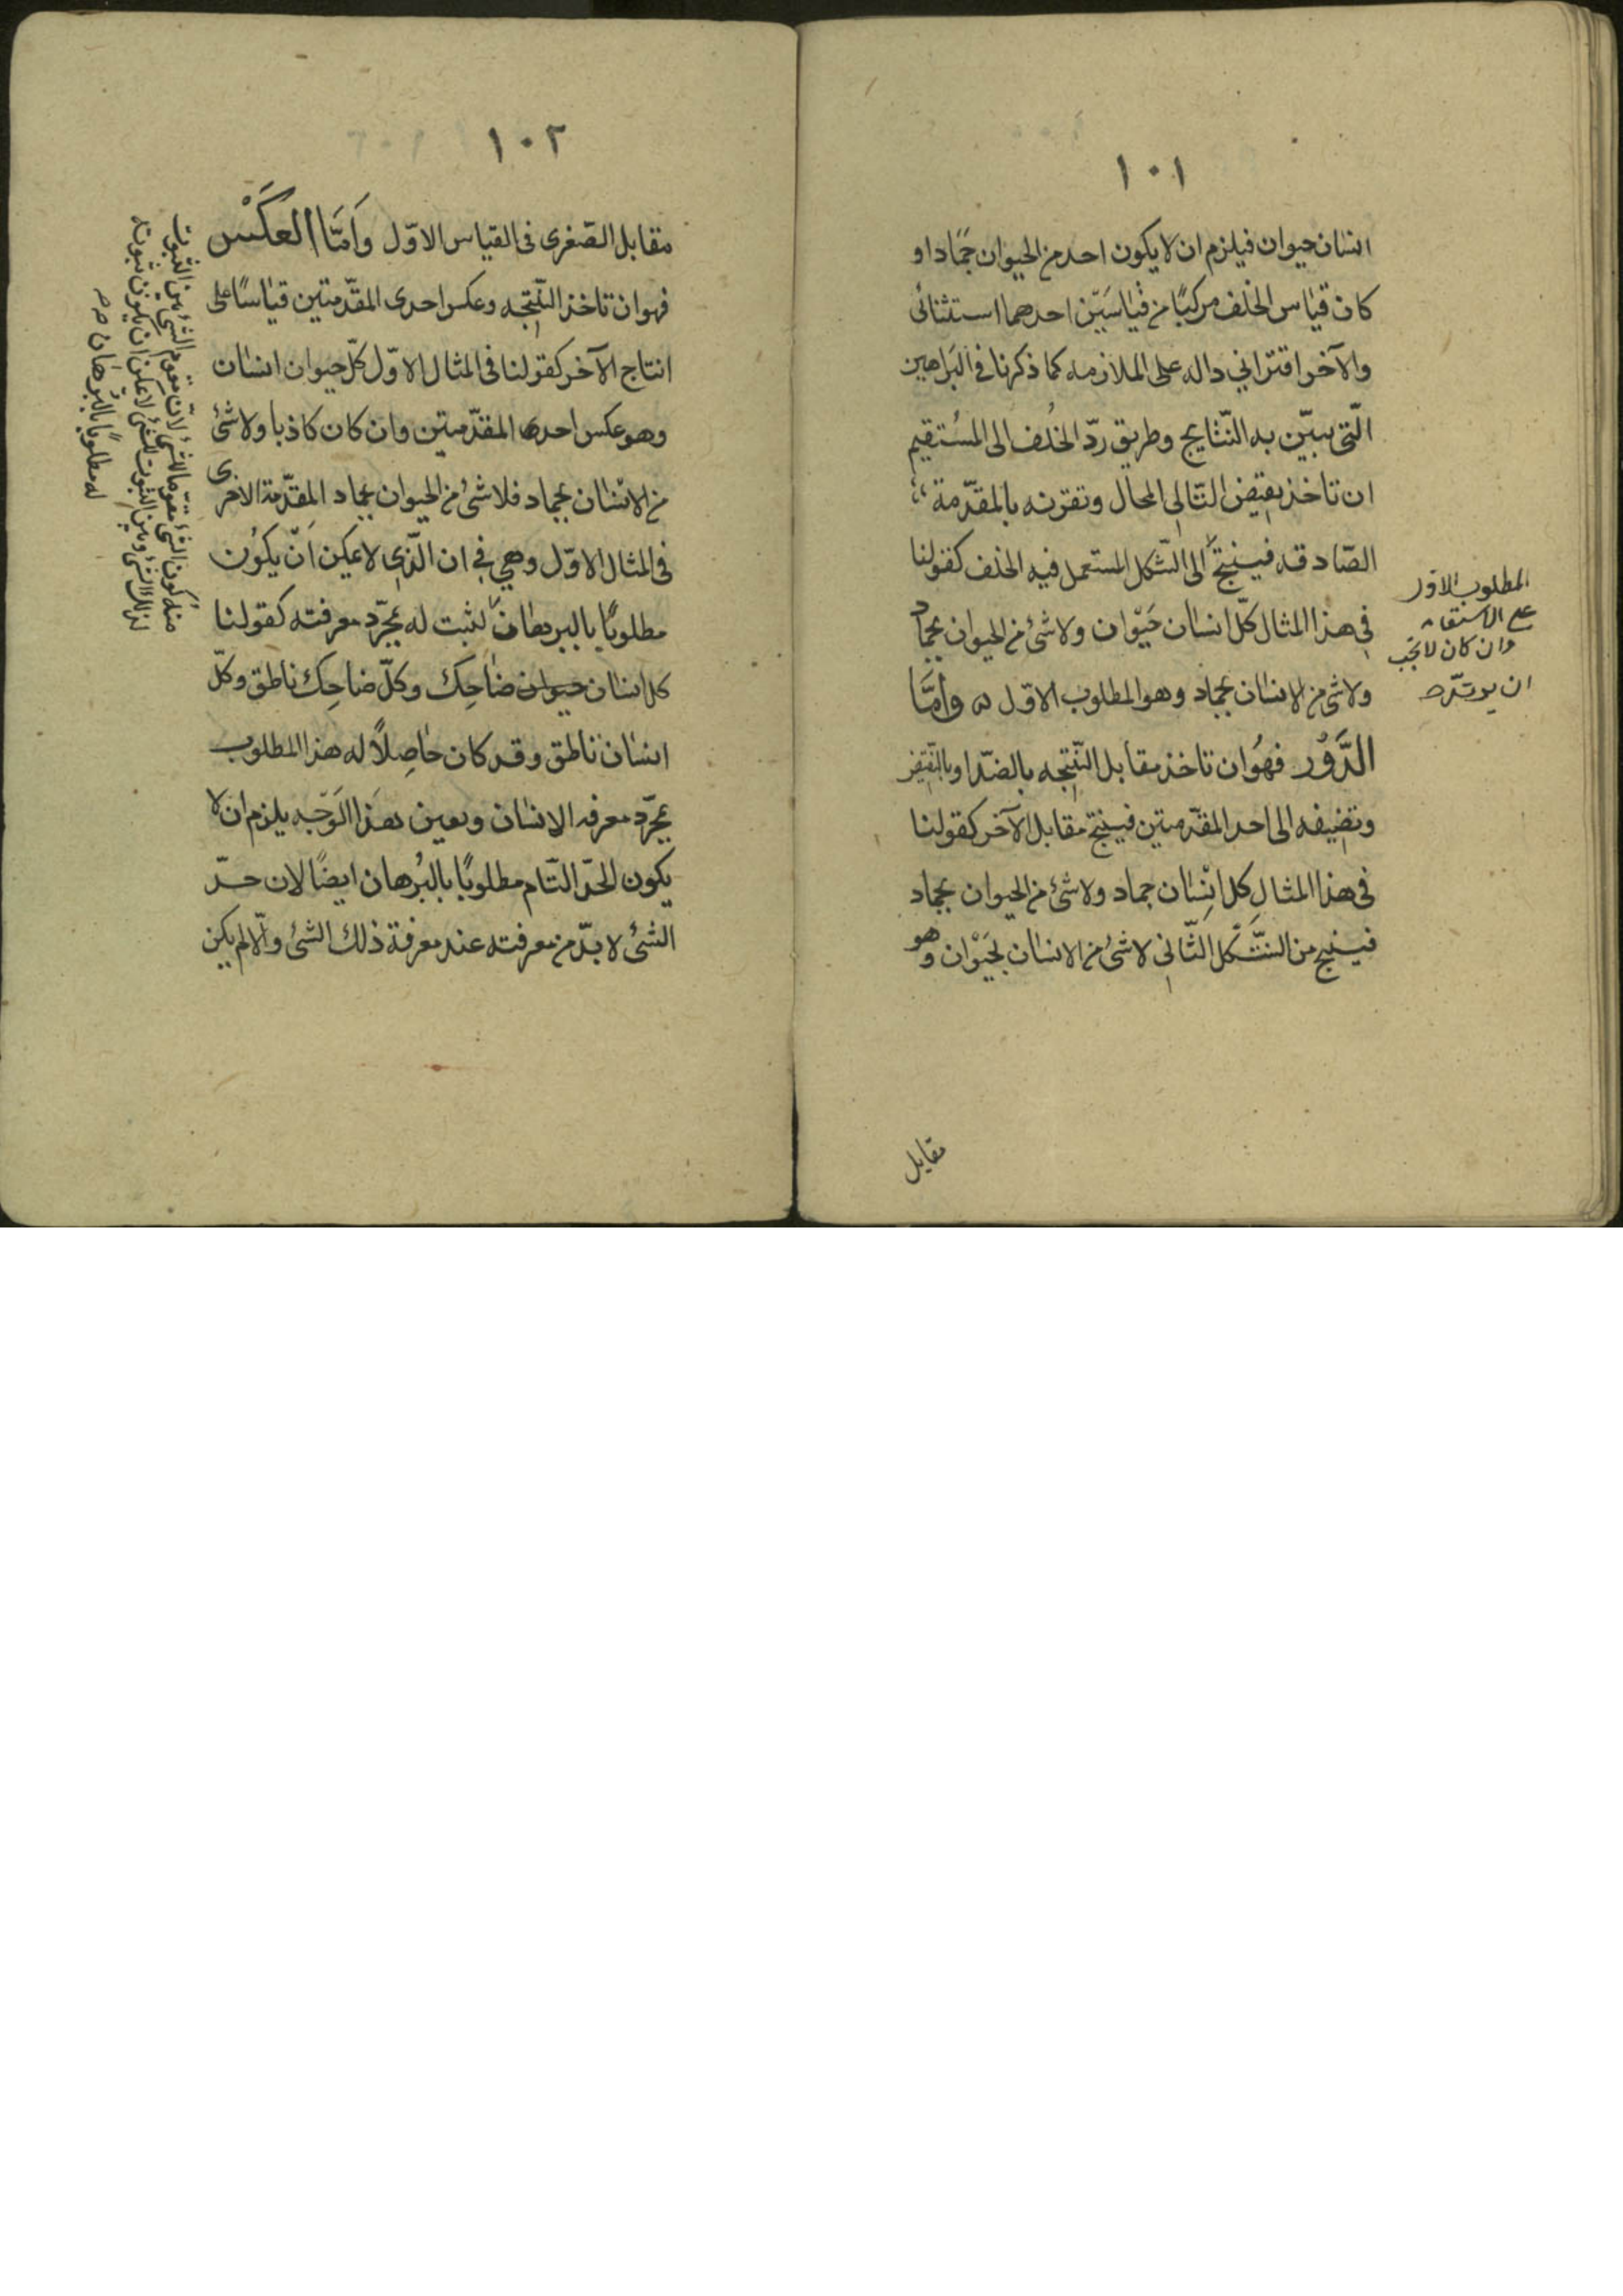 ١٠١
انسان حيوان فيلزم ان لا يكون احد من الحيوان جمادا و
كان قياس الخلف مركبًا من قياسَيّن احدهما استثنائى
والآخر اقترانى داله على الملازمه كما ذكرنا فى البَراهين
الّتى يبيّن به النّتايج وطريق ردّ الخُلف الى المسُتقيم
ان تاخذ نقيض التّالى المحال وتقرنه بالمقدّمة
الصّادقه فينتج الى الشّكل المستعمل فيه الخلف كقولنا
فى هذا المثال كلّ انسان حَيْوان ولا شئ من الحيوان بجماد
ولا شى من الانسان بجماد وهو المطلوب الاوّل وَأمَّا
الدَّوْر فهُوَ ان تاخذ مقابل النّتيجه بالضدّ او بالنّقيض
وتضيفه الى احد المقدّمتين فينتج مقابل الآخر كقولنا
فى هذا المثال كل انِسْان جماد ولا شئ من الحيوان بجماد
فينتج من الشّكل الثّانى لا شئ من الانسان بحَيْوان وهو
المطلوب الاول
على الاستقامه
وان كان لا يجب
ان
مقابل
١٠٢
مقابل الصّغرى فى القياس الاوّل وَاَمَّا العَكَسْ
فهو ان تاخذ النّتيجه وعكس احدى المقدّمتين قياسًا على
انتاج الآخر كقولنا فى المثال الاوّل كلّ حيوان انسان
وهو عكس احدى المقدّمتين وان كان كاذبا ولا شئ
من الانسان بجماد فلا شئ من الحيوان بجماد المقدّمة الاخرى
فى المثال الاوّل وهى فى ان الّذى لا يمكن اَنّ يكوُن
مطلوبًا بالبرهان لثبت له بمجرّد معرفته كقولنا
كل انسان حيوان ضاحِك وكلّ ضاحِك ناطق وكلّ
انسان ناطق وقد كان حاصِلاً له هذا المطلوب
بمجرّد معرفه الانسان وبعين هذا الوَجّه يلزم ان لا
يكون الحدّ التّام مطلوبًا بالبُرهان ايضًا لان حدّ
الشئ لا بدّ من معرفته عند معرفة ذلك الشئ والّا لم يكن
منه كون الشئ مقوّما للشى لانّ مقوم الشئ بين الثبوت
لذلك الشئ وبين الثبوت للشئ لا يمكن ان يكون ثبوته
له مطلوبًا بالبُرهان